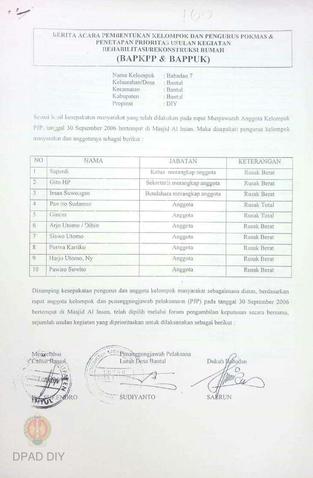 BERITA ACARA PEMBENTUKAN KELOMPOK DAN PENGURUS POKMAS &
PENETAPAN PRIORITAS USULAN KEGIATAN
REHABILITASI/REKONSTRUKSI RUMAH
(BAPKPP & BAPPUK)
Nama Kelompok : Babadan 7
Kelurahan/Desa : Bantul
Kecamatan : Bantul
Kabupaten : Bantul
Propinsi : DIY
Sesuai hasil kesepakatan masyarakat yang telah dilakukan pada rapat Musyawarah Anggota Kelompok
PJP, tanggal 30 September 2006 bertempat di Masjid Al Insan. Maka disepakati pengurus kelompok
masyarakat dan anggotanya sebagai berikut :
NO NAMA JABATAN KETERANGAN
1 Supardi Ketua merangkap anggota Rusak Berat
2 Gito HP Sekretaris merangkap anggota Rusak Berat
3 Insan Suwongso Bendahara merangkap anggota Rusak Berat
4 Pawiro Sudarmo Anggota Rusak Total
5 Anggota Rusak Total
6 Arjo Utomo / Anggota Rusak Berat
7 Siswo Utomo Anggota Rusak Berat
8 Anggota Rusak Berat
9 Harjo Utomo, Ny Anggota Rusak Berat
10 Pawiro Suwito Anggota Rusak Berat
Disamping kesepakatan pengurus dan anggota kelompok masyarakat sebagaimana diatas, berdasarkan
rapat anggota kelompok dan penanggungjawab pelaksanaan (PJP) pada tanggal 30 September 2006
bertempat di Masjid Al Insan, telah dipilih melalui forum pengambilan keputusan secara bersama,
sejumlah usulan kegiatan yang diprioritaskan untuk dilaksanakan sebagai berikut :
Mengetahui Penanggungjawab Pelaksana
Camat Bantul Lurah Desa Bantul Dukuh Babadan
SUDIYANTO
DPAD DIY